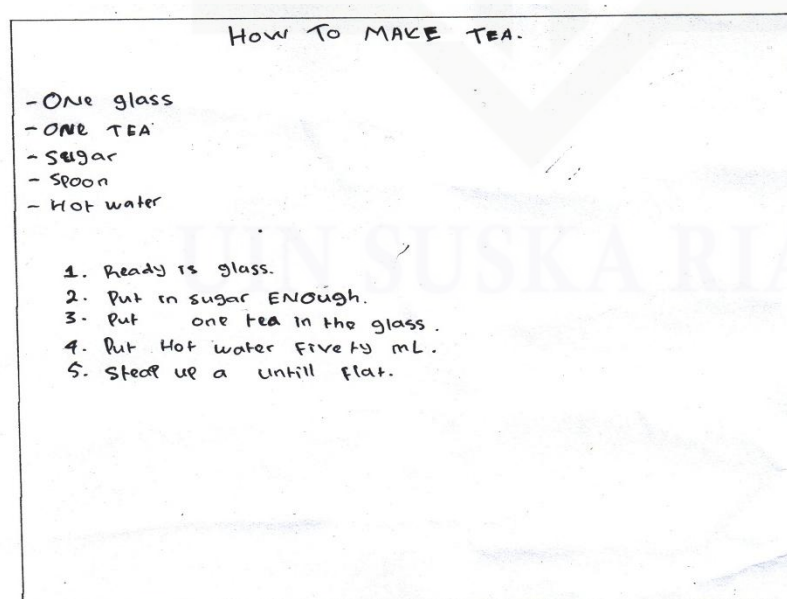 HOW TO MAKE TEA.
- ONE glass
- ONE TEA
- sugar
- spoon
- Hot water
1. Ready is glass.
2. Put in sugar ENOugh.
3. Put one tea in the glass.
4. Put Hot water Fivety mL.
5. Steap up a untill flat.
UIN SUSKA RIA